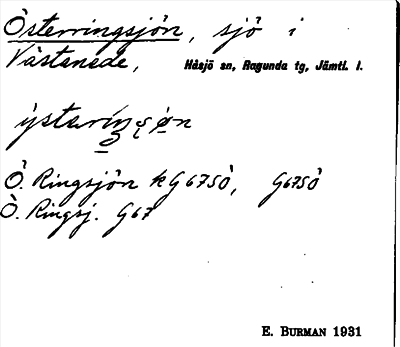 Österringsjön, sjö i
Västanede, Håsjö sn, Ragunda tg, Jämtl. l.
Ö. Ringsjön kG67SÖ, G67SÖ
Ö. Ringsj. G67
E. BURMAN 1931